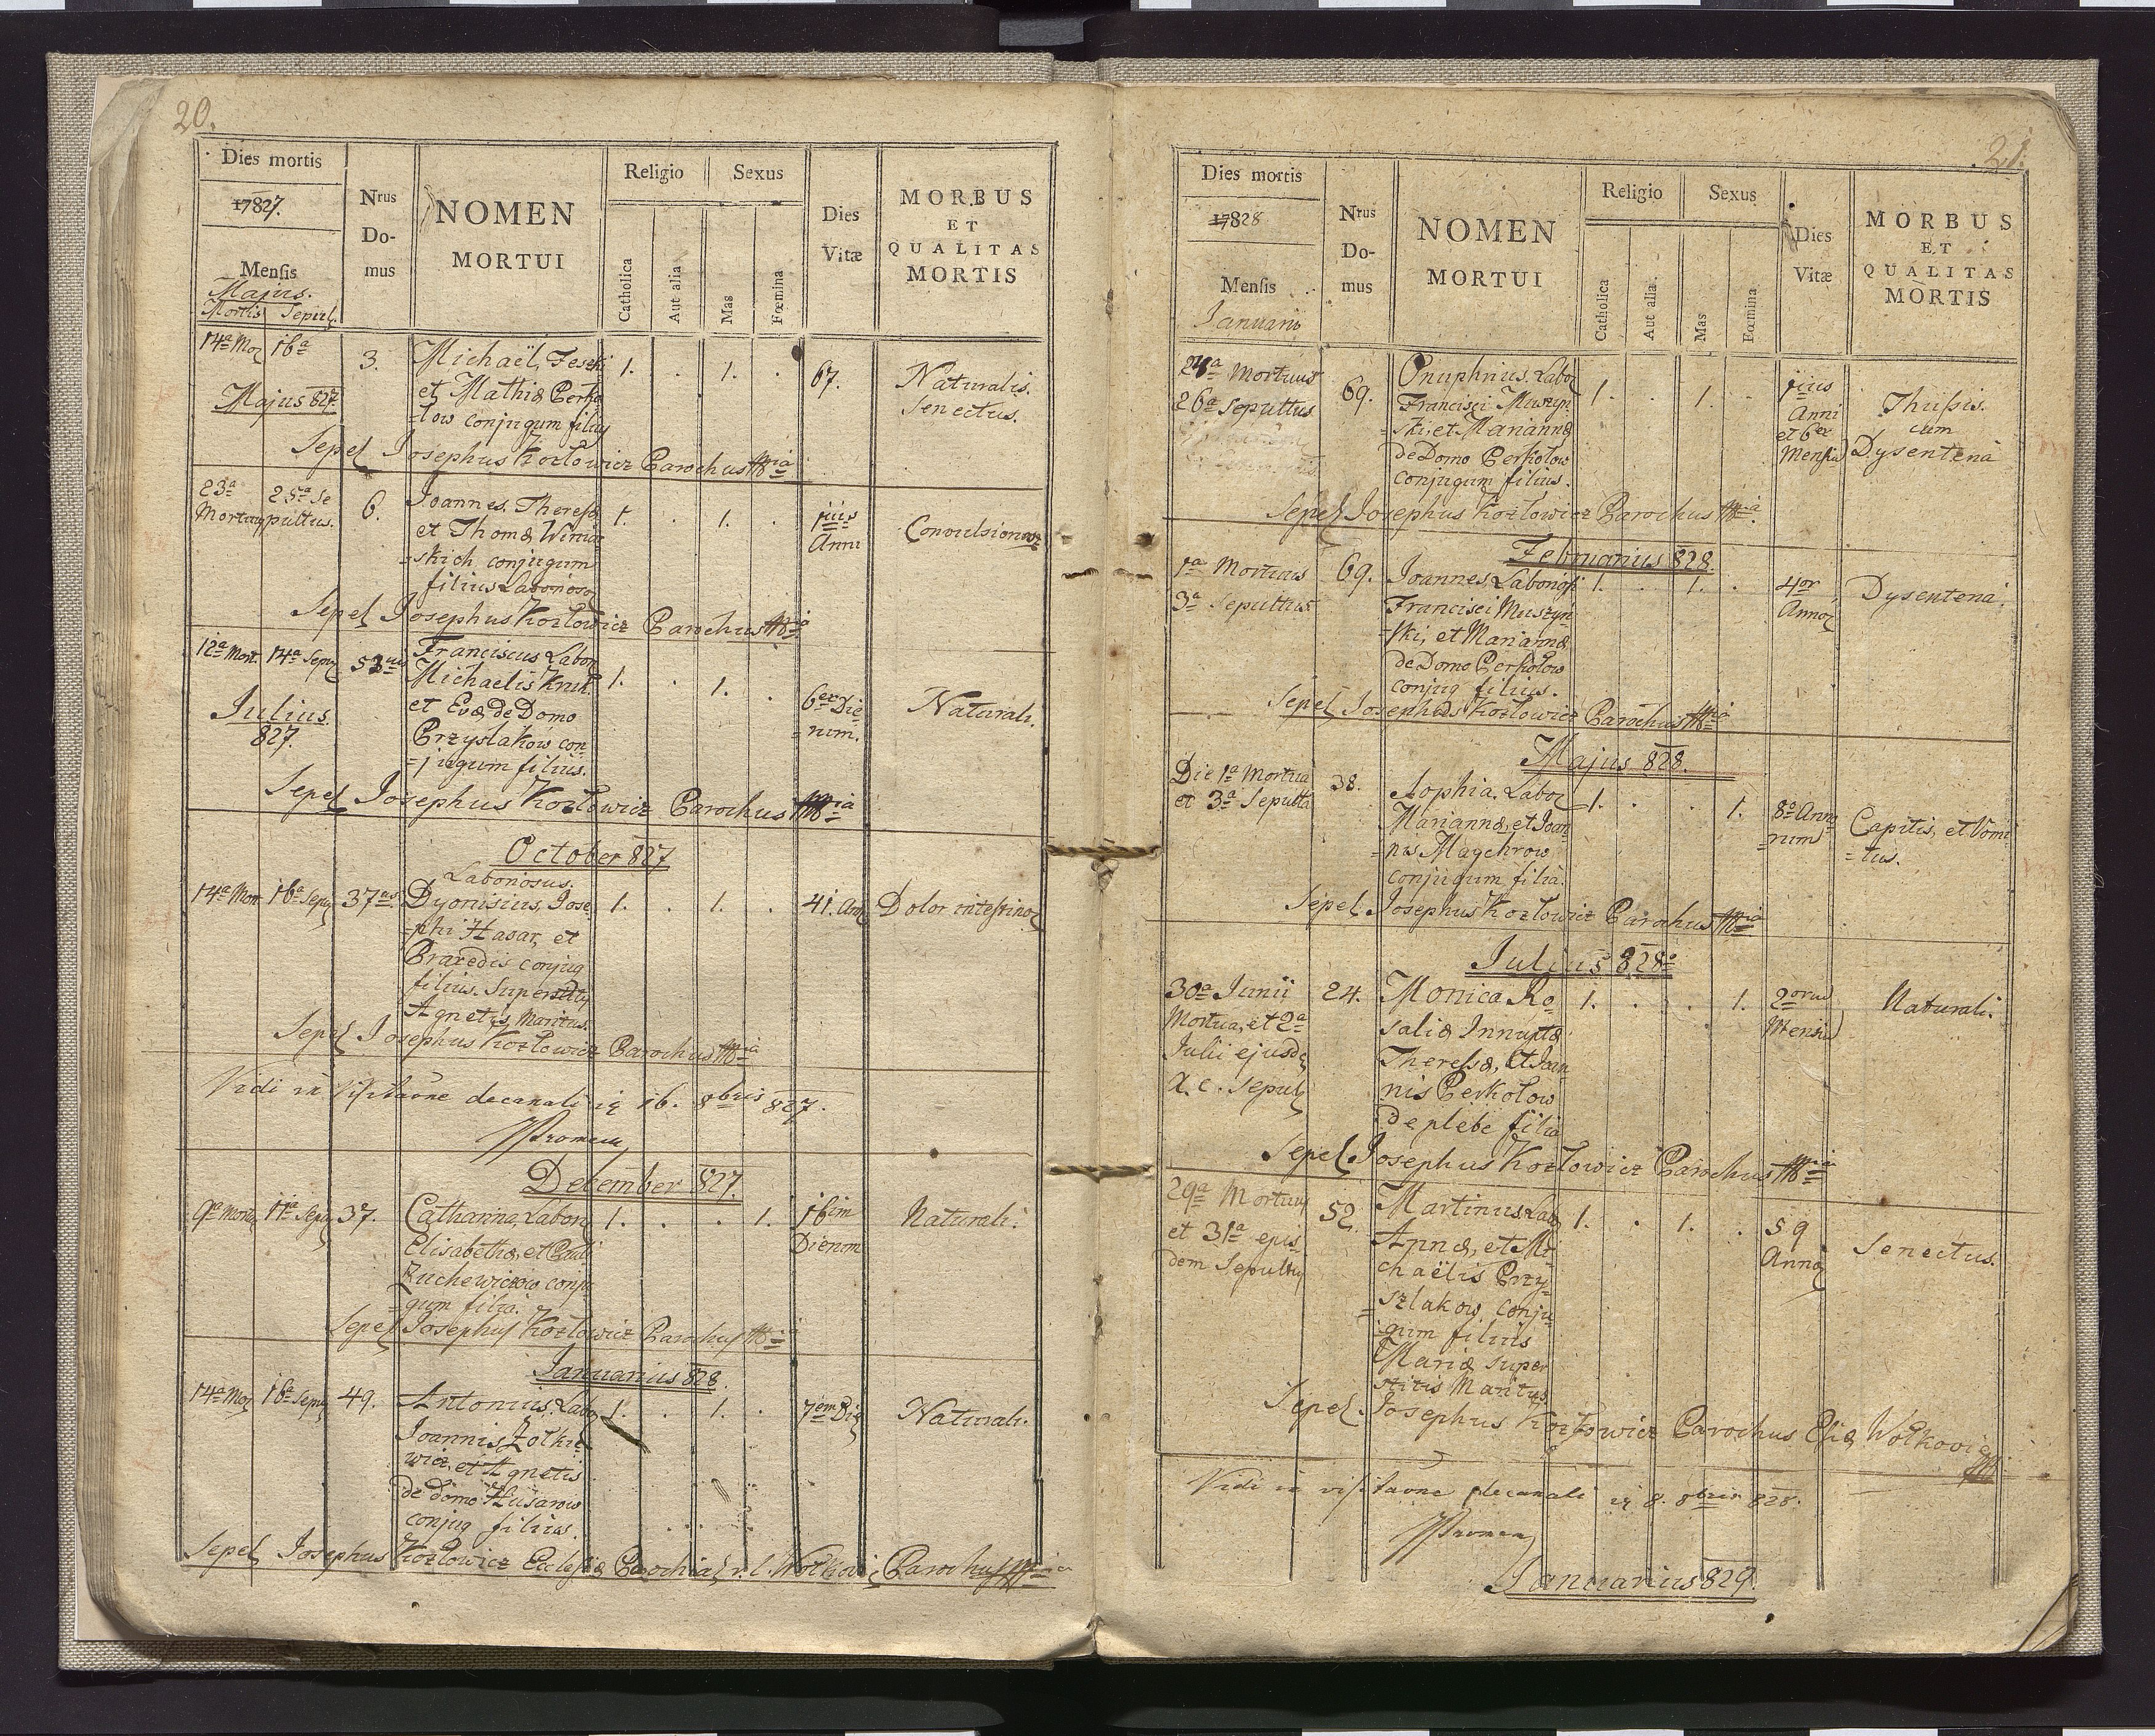 20.
Dies mortis
17827.
Mensis
Majus.
Mortis Sepul.
Nrus
Do-
mus
NOMEN
MORTUI
Religio
Catholica
Aut alia
Sexus
Mas
Fœmina
Dies
Vitæ
MORBUS
ET
QUALITAS
MORTIS
14ª Mor 16ª
Majus 827
3.
Michaël, Feszki
et Mathiæ Perko
-low conjugum filius
1. . 1. .
67.
Naturalis.
Senectus.
Sepel Josephus Kozłowicz Parochus
23ª 25ª Se
Mortuus pultus.
6.
Joannes, Theresæ
et Thomæ Winiar
-skich conjugum
filius Laborioso
1. . 1. .
1ius
Anni
Convulsionis
Sepel Josephus Kozłowicz Parochus
12ª Mort. 14ª Sepu
Julius.
827.
53us
Franciscus Labor
Michaelis Kruk
et Evæ de Domo
Przyslakow con-
-jugum filius.
1. . 1. .
6er Die
-rum.
Naturali.
Sepel Josephus Kozłowicz Parochus
October 827
14ª Mor 16ª Sepu 37us
Laboriosus.
Dyonisius, Jose-
-phi Hasar, et
Praxedis conjug
filius. Superstitis
Agnetis, Maritus.
1. . 1. .
41. Ann
Dolor intestino
Sepel Josephus Kozłowicz Parochus
Vidi in Visitaone decanali 16. 8bris 827.
December 827.
9ª Mortu 11ª Sepu 37.
Catharina, Labor
Elisabethæ, et Pauli
Zuchewiczow conju
-gum filia.
1. . . 1.
16im
Dierum
Naturali.
Sepel Josephus Kozłowicz Parochus
Januarius 828.
14ª Mor 16ª Sepu 49.
Antonius, Labor
Joannis Zolkie
wicz, et Agnetis
de domo Husarow
conjug filius.
1. . 1. .
7em Die
Naturali.
Sepel Josephus Kozłowicz Ecclesiæ Parochial r. l. Wolkovi Parochus
21.
Dies mortis
17828
Mensis
Januarii
Nrus
Do-
mus
NOMEN
MORTUI
Religio
Catholica
Aut alia.
Sexus
Mas
Fœmina
Dies
Vitæ
MORBUS
ET
QUALITAS
MORTIS
24ª Mortuus
26ª Sepultus
69.
Onuphrius. Labor
Francisci Muszyn
-ski, et Mariannæ
de Domo Perkolow
conjugum filius.
1. . 1. .
1ius
Anni
et 6er
Mensiu
Thissis.
cum
Dysenteria
Sepel Josephus Kozłowicz Parochus
Februarius 828.
1ª Mortuus
3ª Sepultus
69.
Joannes, Laboriosi
Francisci Muszyn-
-ski, et Mariannæ
de Domo Perkolow
conjug filius.
1. . 1. .
4or
Anno
Dysenteria.
Sepel Josephus Kozłowicz Parochus
Majus 828.
Die 1ª Mortua
et 3ª Sepulta
38.
Sophia. Labor
Mariannæ, et Joan
-nis Maychrow
conjugum filia.
1. . . 1.
8o Anno
-rum
Capitis, et Vomi
-tus.
Sepel Josephus Kozłowicz Parochus
Julius 828º
30ª Junii
Mortua, et 2ª
Julii ejusd
a. c. Sepul
24.
Monica Ro
saliæ Innuptæ
Theresæ, et Joan-
nis Perkolow
de plebe filia
1. . . 1.
2orum
Mensiu
Naturali.
Sepel Josephus Kozłowicz Parochus
29ª Mortuus
et 31ª ejus
dem Sepultus
52.
Martinus Lab
Annæ, et Mi
chaëlis Przy-
-szlakow, conju
-gum filius
Mariæ super
stitis Maritus.
1. . 1. .
59
Anno
Senectus.
Sepel. Josephus Kozłowicz Parochus Wołkovie
Vidi in visitaone decanali 8. 8bris 828.
Januarius 829.